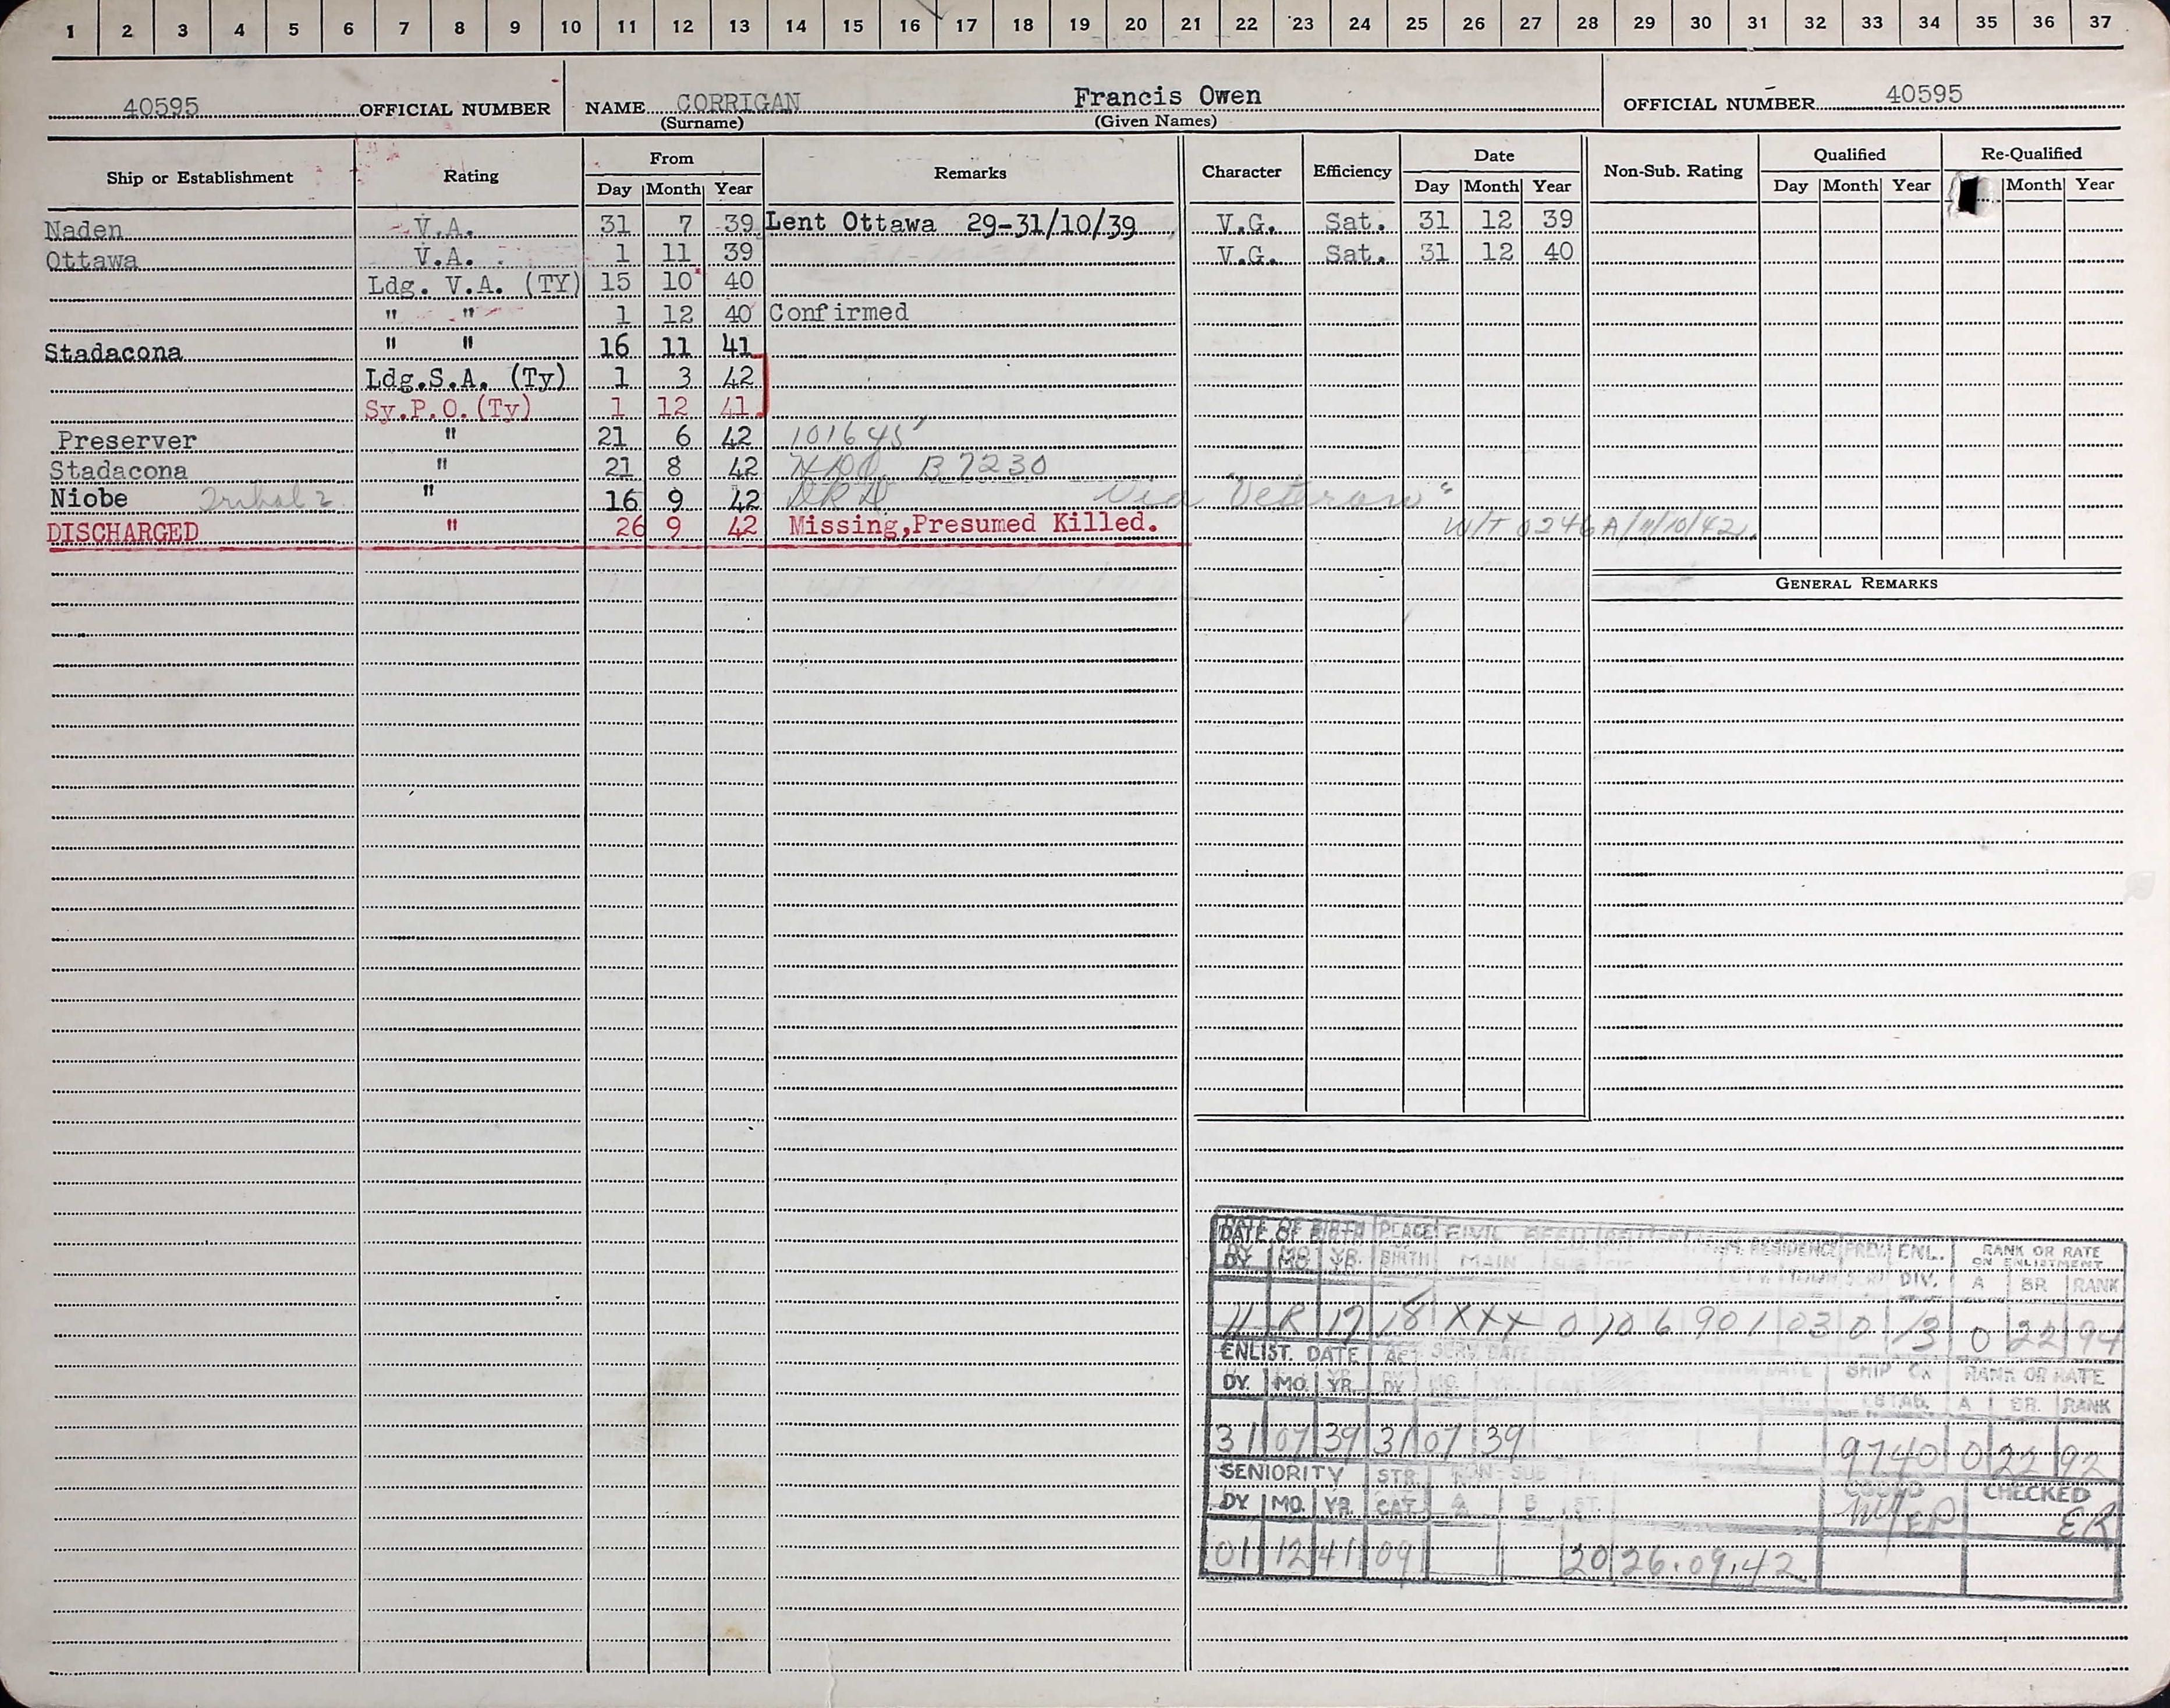 1 2 3 4 5 6 7 8 9 10 11 12 13 14 15 16 17 18 19 20 21 22 23 24 25 26 27 28 29 30 31 32 33 34 35 36 37
40595 OFFICIAL NUMBER NAME CORRIGAN Francis Owen OFFICIAL NUMBER 40595
(Surname) (Given Names)
Ship or Establishment Rating From Remarks Character Efficiency Date Non-Sub. Rating Qualified Re-Qualified
Day Month Year Day Month Year Day Month Year Month Year
Naden V.A. 31 7 39 Lent Ottawa 29-31/10/39 V.G. Sat. 31 12 39
Ottawa V.A. 1 11 39 V.G. Sat. 31 12 40
Ldg. V.A. (TY) 15 10 40
" " 1 12 40 Confirmed
Stadacona " " 16 11 41
Ldg.S.A. (Ty) 1 3 42
Sy.P.O.(Ty) 1 12 41
Preserver " 21 6 42 101645
Stadacona " 21 8 42 B7230
Niobe Tribal 2 " 16 9 42 Via "Veteran"
DISCHARGED " 26 9 42 Missing,Presumed Killed. W/T 0246A/11/10/42.
GENERAL REMARKS
DATE OF BIRTH PLACE CIVIL RESIDENCE PREV. ENL. RANK OR RATE
ON ENLISTMENT
DY. MO. YR. BIRTH MAIN DIV. A BR. RANK
11 R 17 18 XXX 0 10 6 901 03 0 13 0 22 94
ENLIST. DATE ACT. SERV. DATE SHIP OR RANK OR RATE
DY. MO. YR. DY. MO. YR. ESTAB. A BR. RANK
31 07 39 31 07 39 9740 0 22 92
SENIORITY STR. NON-SUB CODED CHECKED
DY. MO. YR. CAT. A B ST. ER
01 12 41 09 20 26.09.42